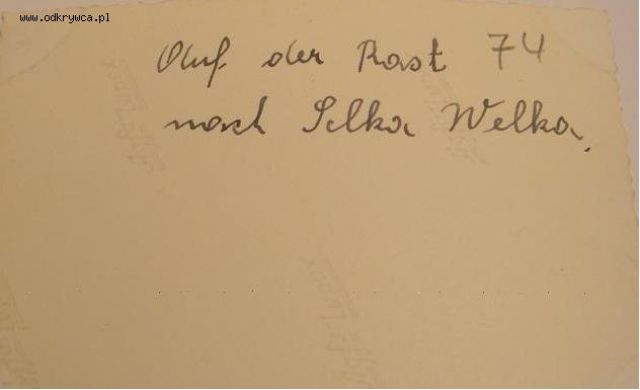 www.odkrywca.pl
Auf der Rast 74
nach Silka Welka.